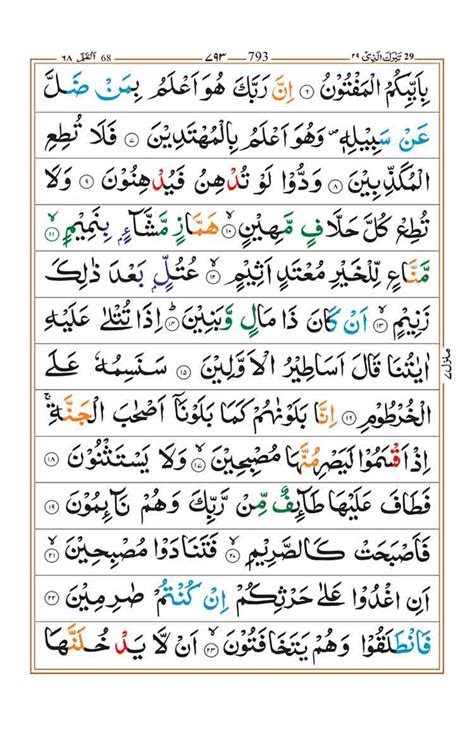 ٦٨ اَلْقَلَم 68 ٧٩٣ 793 تَبٰرَكَ الَّذِىْ ٢٩ 29
بِاَيِّكُمُ الْمَفْتُوْنُ ٦ اِنَّ رَبَّكَ هُوَ اَعْلَمُ بِمَنْ ضَلَّ
عَنْ سَبِيْلِهٖ ۪ وَهُوَ اَعْلَمُ بِالْمُهْتَدِيْنَ ٧ فَلَا تُطِعِ
الْمُكَذِّبِيْنَ ٨ وَدُّوْا لَوْ تُدْهِنُ فَيُدْهِنُوْنَ ٩ وَلَا
تُطِعْ كُلَّ حَلَّافٍ مَّهِيْنٍ ١٠ هَمَّازٍ مَّشَّآءٍۭ بِنَمِيْمٍ ١١
مَّنَّاعٍ لِّلْخَيْرِ مُعْتَدٍ اَثِيْمٍ ١٢ عُتُلٍّۭ بَعْدَ ذٰلِكَ
زَنِيْمٍ ١٣ اَنْ كَانَ ذَا مَالٍ وَّبَنِيْنَ ١٤ اِذَا تُتْلٰى عَلَيْهِ
اٰيٰتُنَا قَالَ اَسَاطِيْرُ الْاَوَّلِيْنَ ١٥ سَنَسِمُهٗ عَلَى
الْخُرْطُوْمِ ١٦ اِنَّا بَلَوْنٰهُمْ كَمَا بَلَوْنَاۤ اَصْحٰبَ الْجَنَّةِ ۚ
اِذْ اَقْسَمُوْا لَيَصْرِمُنَّهَا مُصْبِحِيْنَ ١٧ وَلَا يَسْتَثْنُوْنَ ١٨
فَطَافَ عَلَيْهَا طَآئِفٌ مِّنْ رَّبِّكَ وَهُمْ نَآئِمُوْنَ ١٩
فَاَصْبَحَتْ كَالصَّرِيْمِ ٢٠ فَتَنَادَوْا مُصْبِحِيْنَ ٢١
اَنِ اغْدُوْا عَلٰى حَرْثِكُمْ اِنْ كُنْتُمْ صٰرِمِيْنَ ٢٢
فَانْطَلَقُوْا وَهُمْ يَتَخَافَتُوْنَ ٢٣ اَنْ لَّا يَدْخُلَنَّهَا
منزل ٧